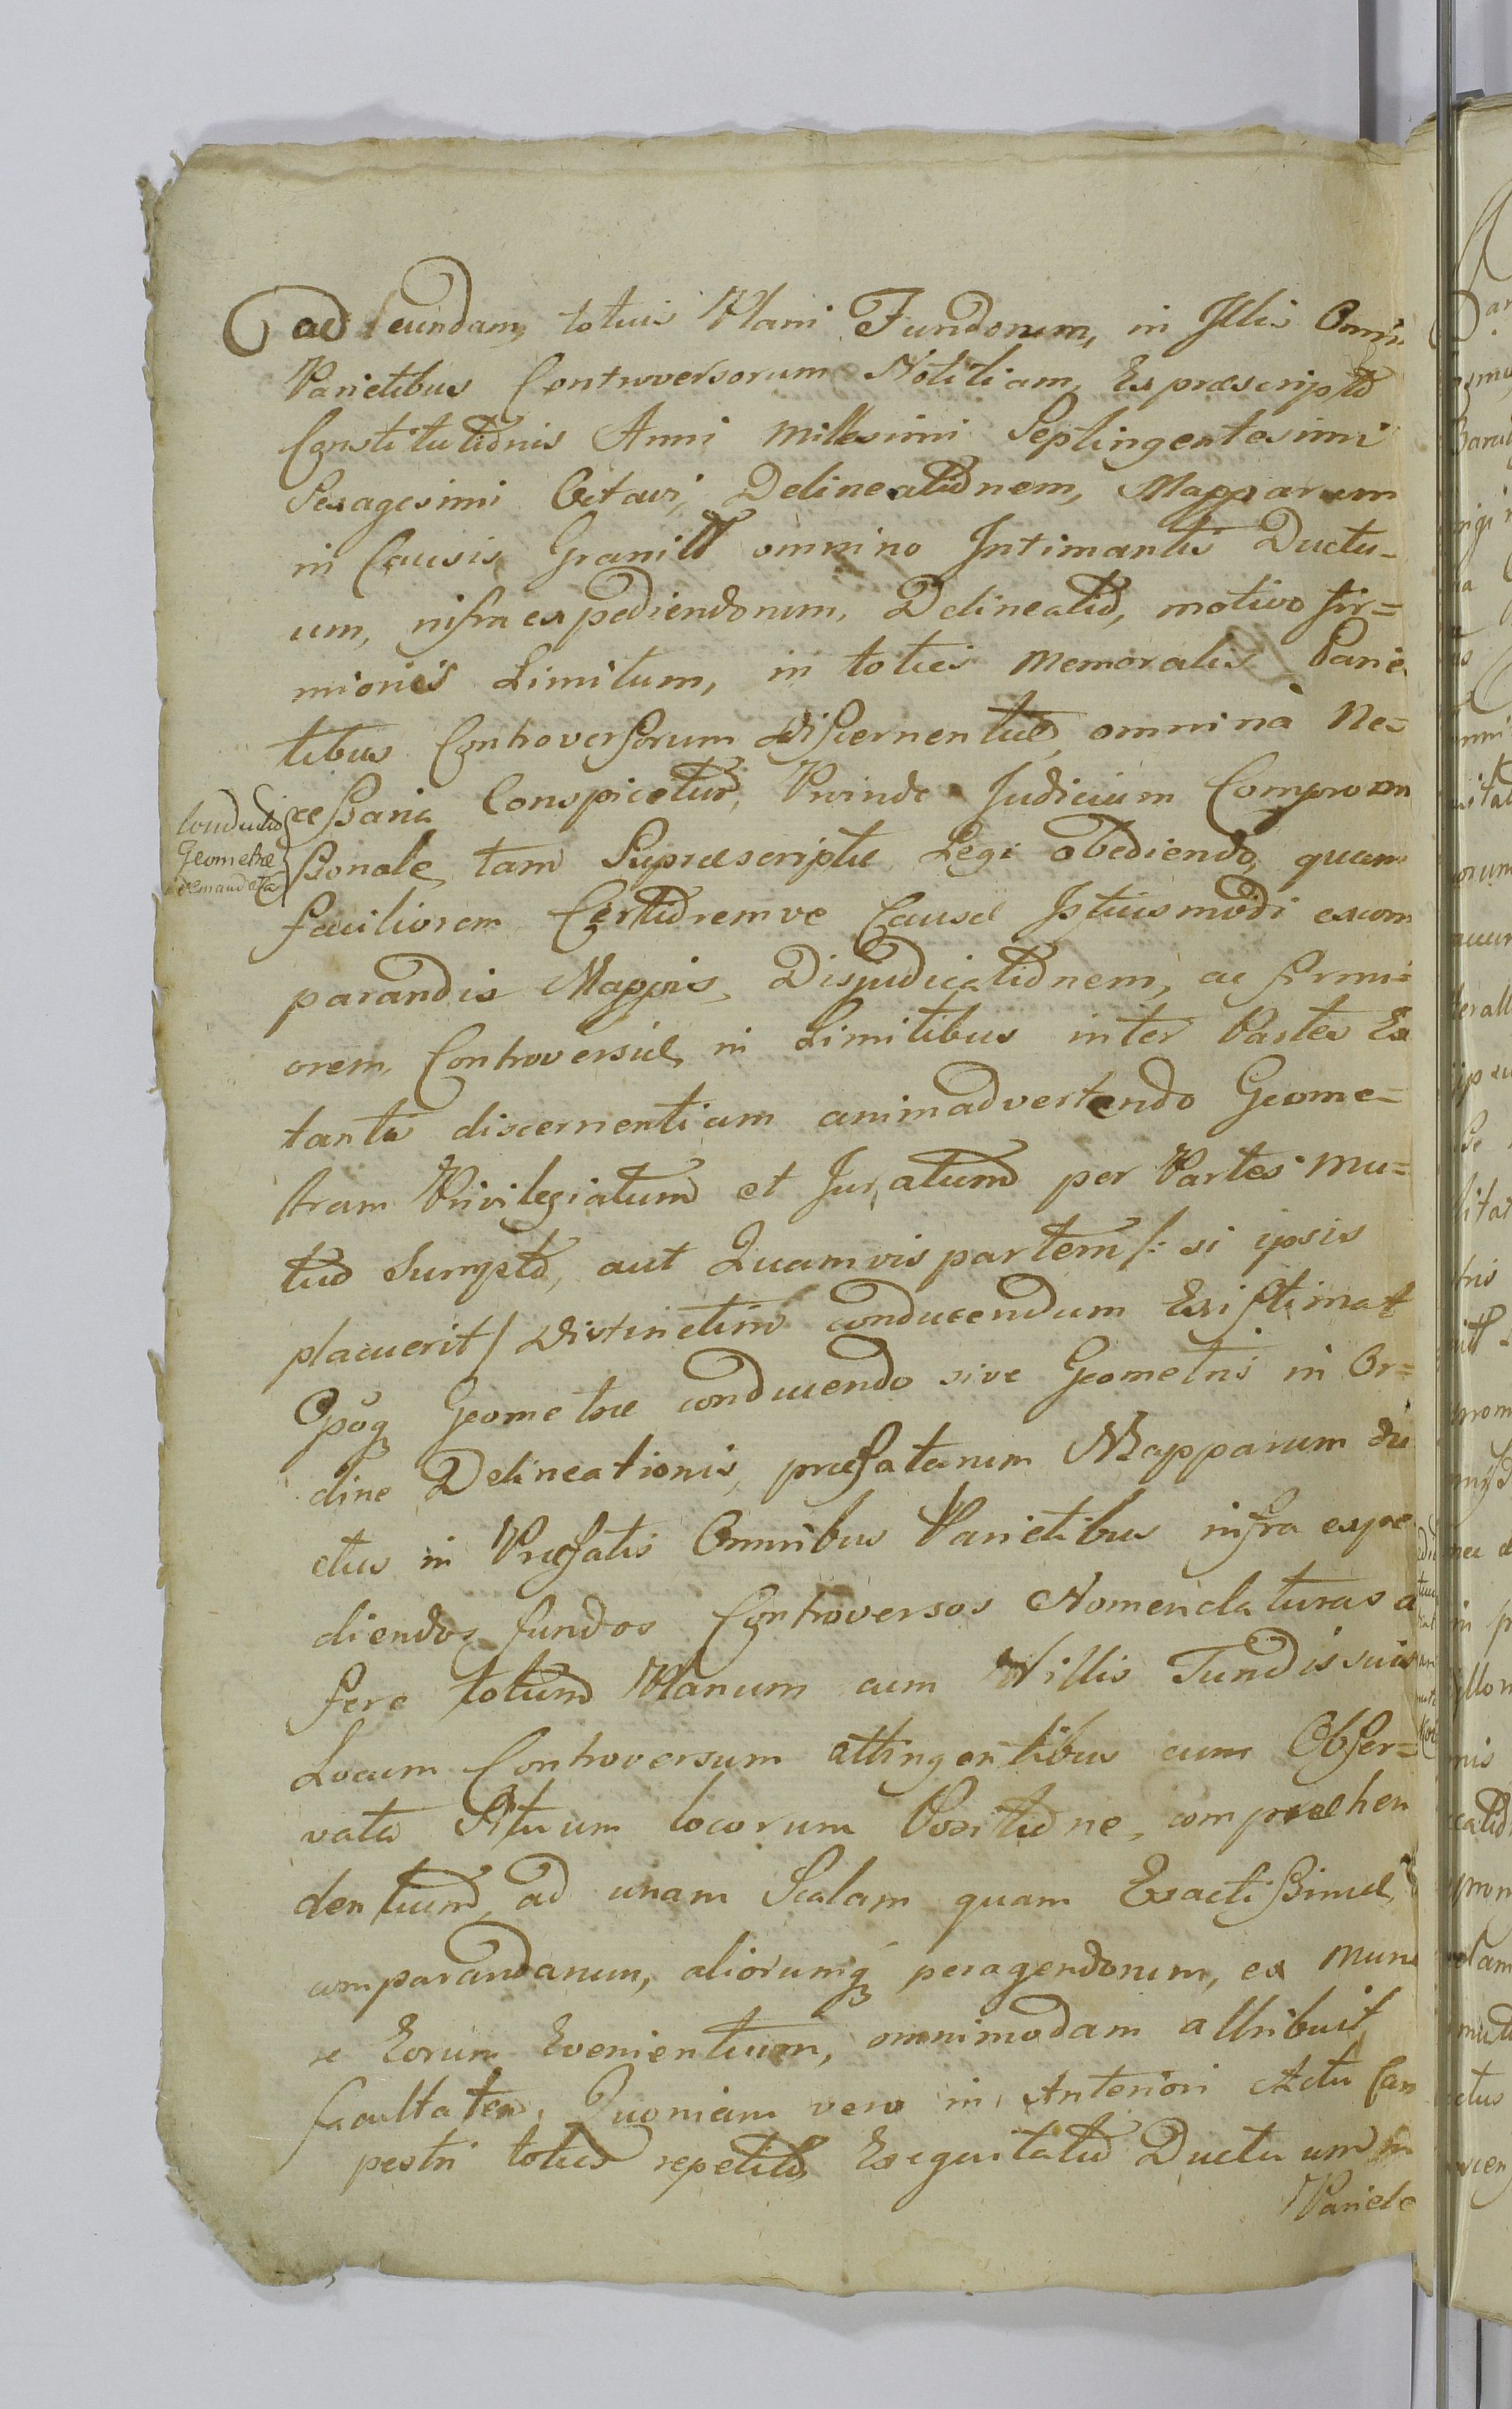 ad eundam totius Plani Fundorum, in Illis Omni
Parietibus Controversorum Notitiam, Ex præscripto
Constitutionis Anni Millesimi Septingentesimi
Sexagesimi Octavi, Delineationem, Mapparum
in Causis Granitt omnino Intimantis Ductu-
um, infra expediendorum, Delineatio, motivo fir=
mioris Limitum, in toties memoratis Parie
tibus Controversorum Discernentiæ, omnino Ne=
cessaria Conspicetur, Proinde Judicium Comprom
issionale, tam Supræscriptæ Legi obediendo, quam
faciliorem Certioremve Causæ Istiusmodi excom
parandis Mappis, Disjudicationem, ac firmi=
orem Controversiæ, in Limitibus inter Partes Ex
tantis discernentiam animadvertendo Geome=
tram Privilegiatum et Juratum per Partes Mu=
tuo Sumpto, aut Quamvis partem /: si ipsis
placuerit / Distinctim conducendum Existimat
Opõq Geometræ conducendo sive Geometris in Or=
dine Delineationis, præfatarum Mapparum du
ctus in Præfatis Omnibus Parietibus infra expe
diendos, fundos Controversos Nomenclaturas a
fere totum Planum cum Villis Fundis suis
Locum Controversum attingentibus cum Obser=
vata Situum locorum Positione, compræhen
dentium, ad unam Scalam quam Exactissimæ,
comparandarum, aliorumq peragendorum, ex Mune
re Eorum Evenientium, omnimodam attribuit
facultatem. Quoniam vero in Anteriori Actu Cam
pestri toties repetito, Exequitatio Ductuum in
Pariete
Conductio
Geometræ
demandata